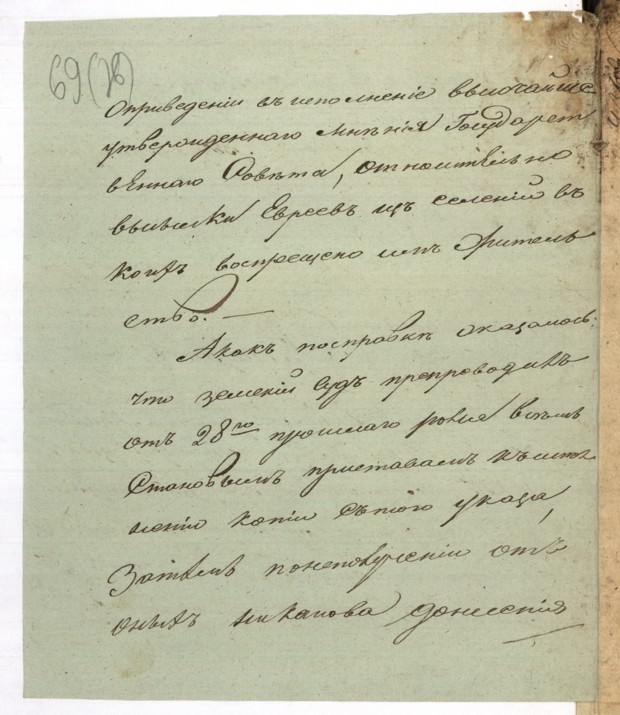 69 (76)
Оприведеніи въ исполненіе высочайше
утвержденнаго мнѣнія Государст
веннаго Совѣта, относительно
высылки Евреевъ изъ селеній въ
коихъ воспрещено имъ житель
ство. —
А какъ посправкѣ оказалось
что земскій судъ препроводилъ
отъ 28го прошлаго всѣмъ
Становымъ приставамъ къ испол
ненію копіи съ того указа,
Затѣмъ понеполученіи отъ
оныхъ никакова донесенія